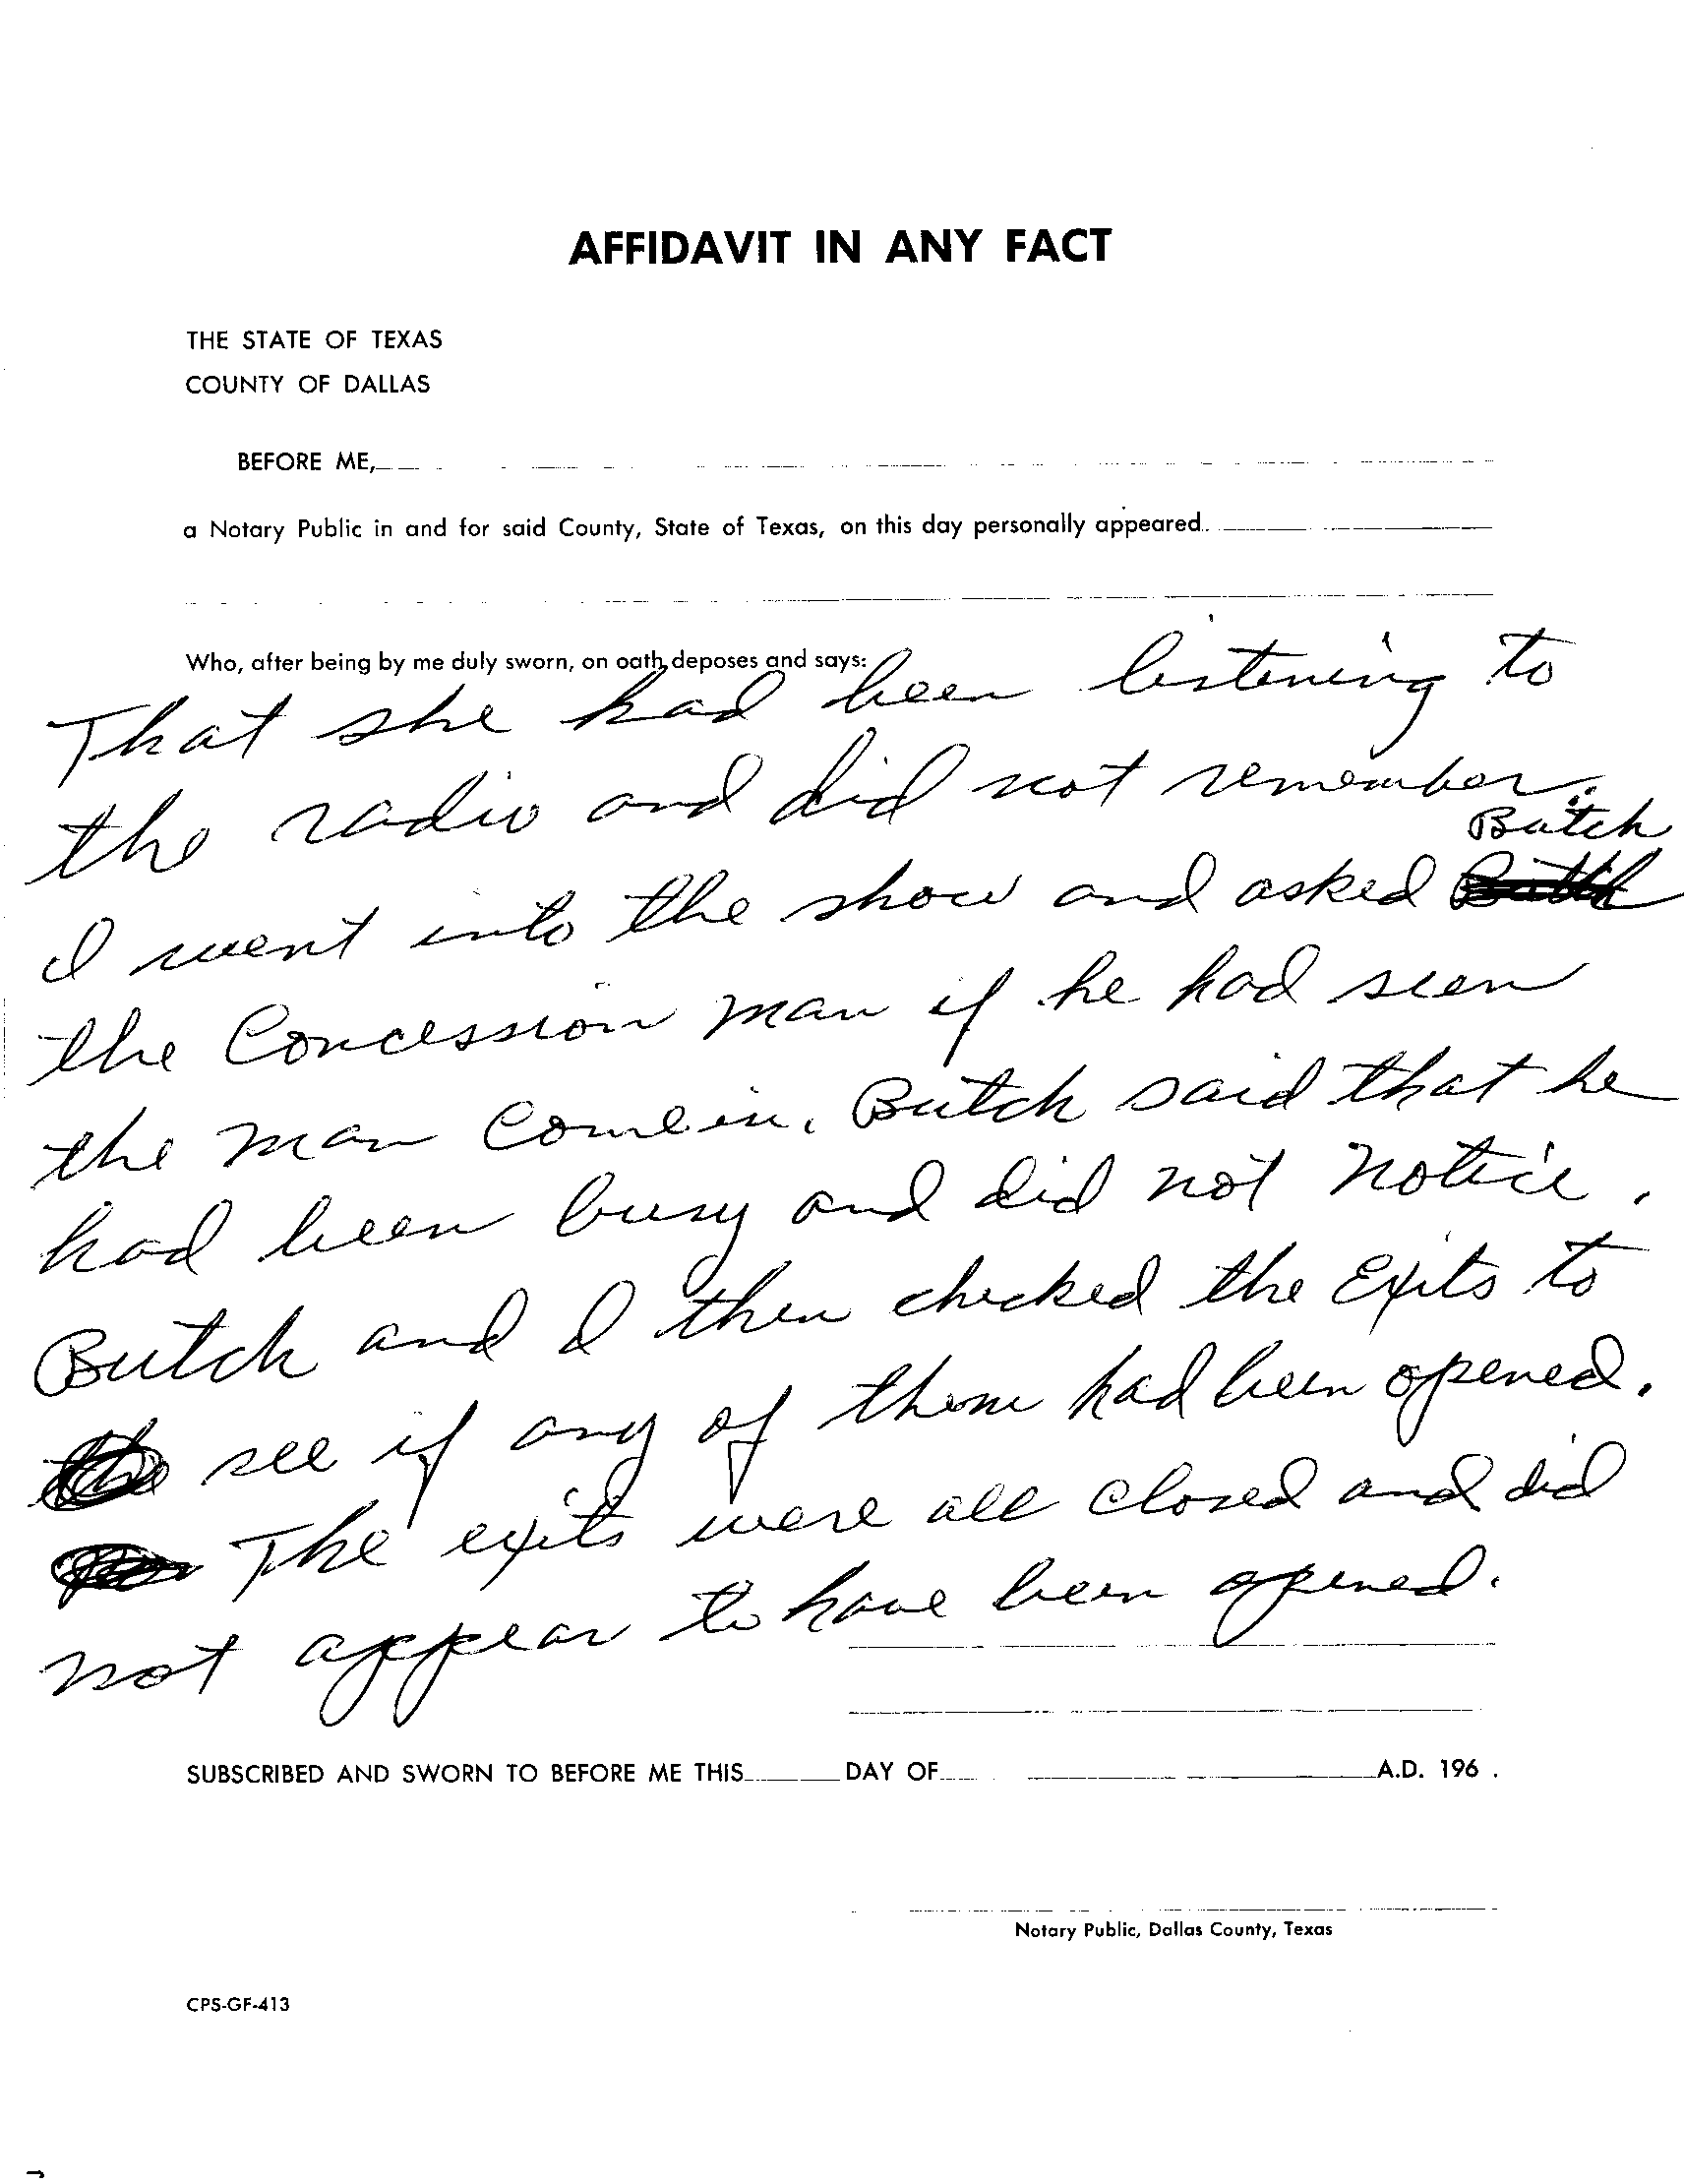 AFFIDAVIT IN ANY FACT
THE STATE OF TEXAS
COUNTY OF DALLAS
BEFORE ME,
a Notary Public in and for said County, State of Texas, on this day personally appeared
Who, after being by me duly sworn, on oath, deposes and says:
That she had been listening to
the radio and did not remember.
Butch
I went into the show and asked
the Concession man if he had seen
the man come in. Butch said that he
had been busy and did not notice.
Butch and I then checked the Exits to
see if any of them had been opened.
The exits were all closed and did
not appear to have been opened.
SUBSCRIBED AND SWORN TO BEFORE ME THIS DAY OF A.D. 196 .
Notary Public, Dallas County, Texas
CPS-GF-413